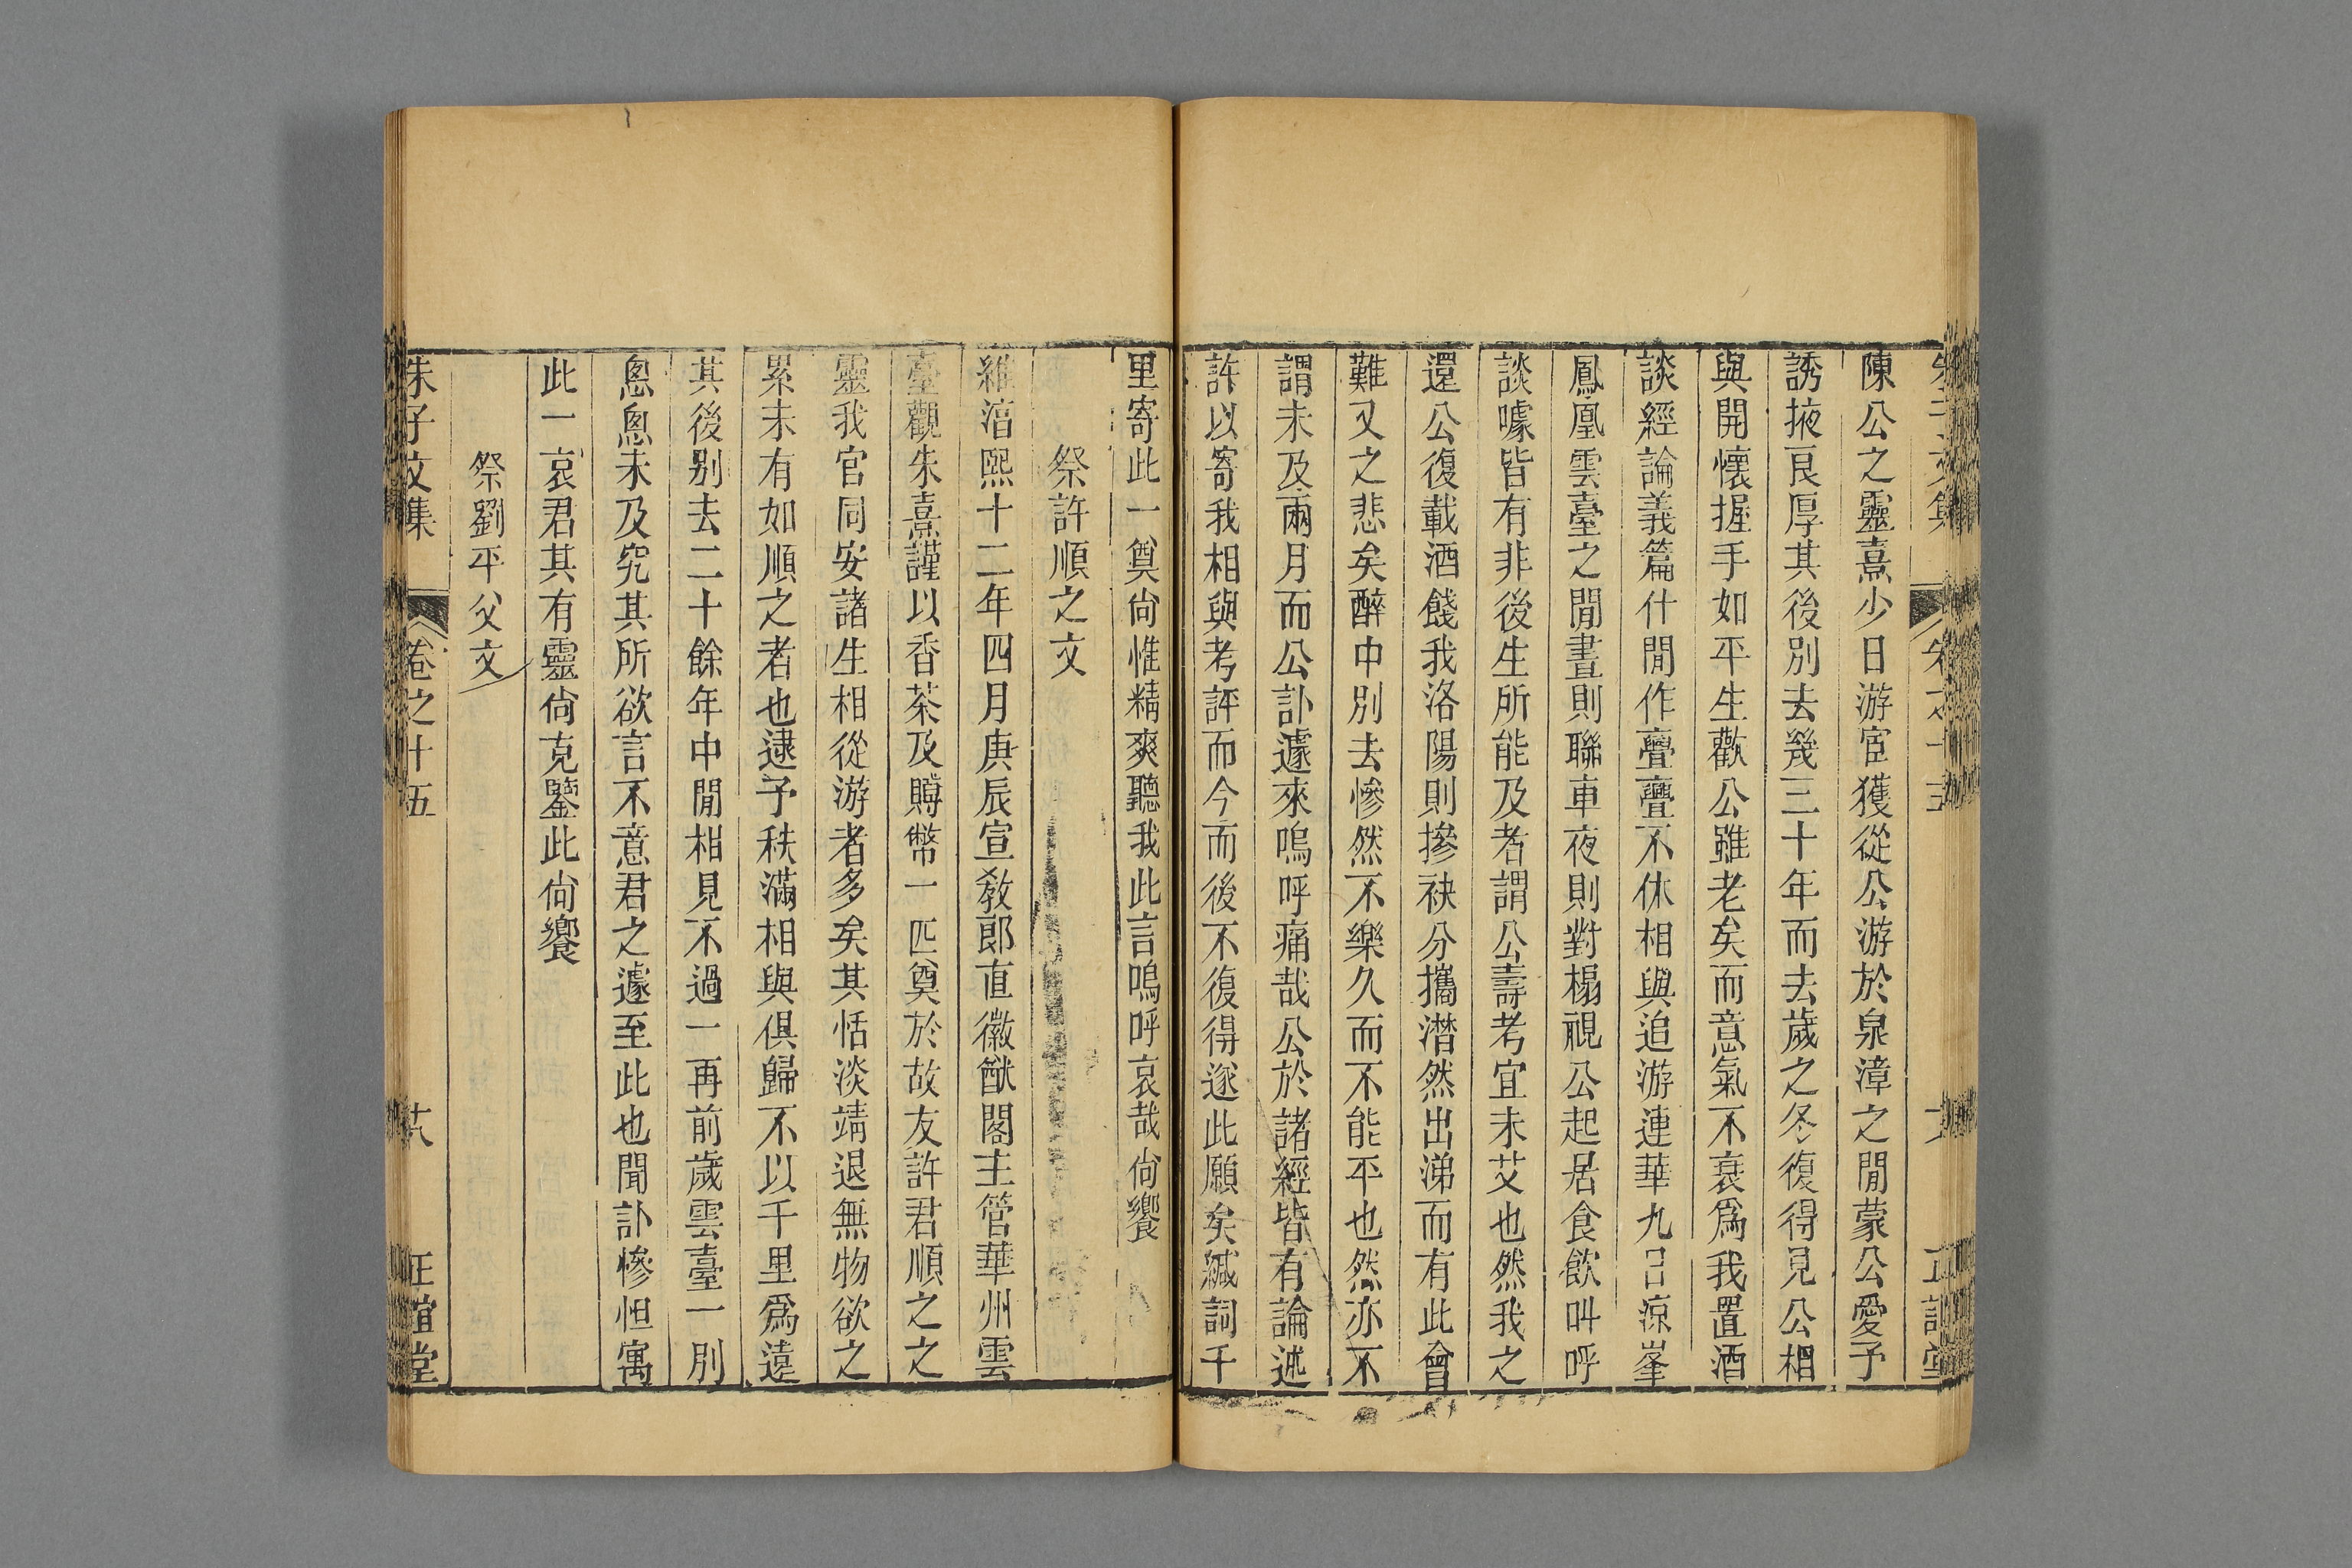 陳公之靈熹少日游宦獲從公游於泉漳之閒蒙公愛予
誘掖良厚其後別去幾三十年而去歲之冬復得見公相
與開懷握手如平生歡公雖老矣而意氣不衰爲我置酒
談經論義篇什閒作亹亹不休相與追游連華九日涼峯
鳳凰雲臺之閒晝則聯車夜則對榻視公起居食飲叫呼
談噱皆有非後生所能及者謂公壽考宜未艾也然我之
還公復載酒餞我洛陽則摻袂分攜潸然出涕而有此會
難又之悲矣醉中別去慘然不樂久而不能平也然亦不
謂未及兩月而公訃遽來嗚呼痛哉公於諸經皆有論述
許以寄我相與考評而今而後不復得遂此願矣緘詞千
里寄此一奠尙惟精爽聽我此言嗚呼哀哉尙饗
祭許順之文
維淳熙十二年四月庚辰宣教郎直徽猷閣主管華州雲
臺觀朱熹謹以香茶及賻幣一匹奠於故友許君順之之
靈我官同安諸生相從游者多矣其恬淡靖退無物欲之
累未有如順之者也逮予秩滿相與俱歸不以千里爲遠
其後別去二十餘年中閒相見不過一再前歲雲臺一別
悤悤未及究其所欲言不意君之遽至此也聞訃慘怛寓
此一哀君其有靈尙克鑒此尙饗
祭劉平父文
朱子文集 卷之十五 十八 正誼堂